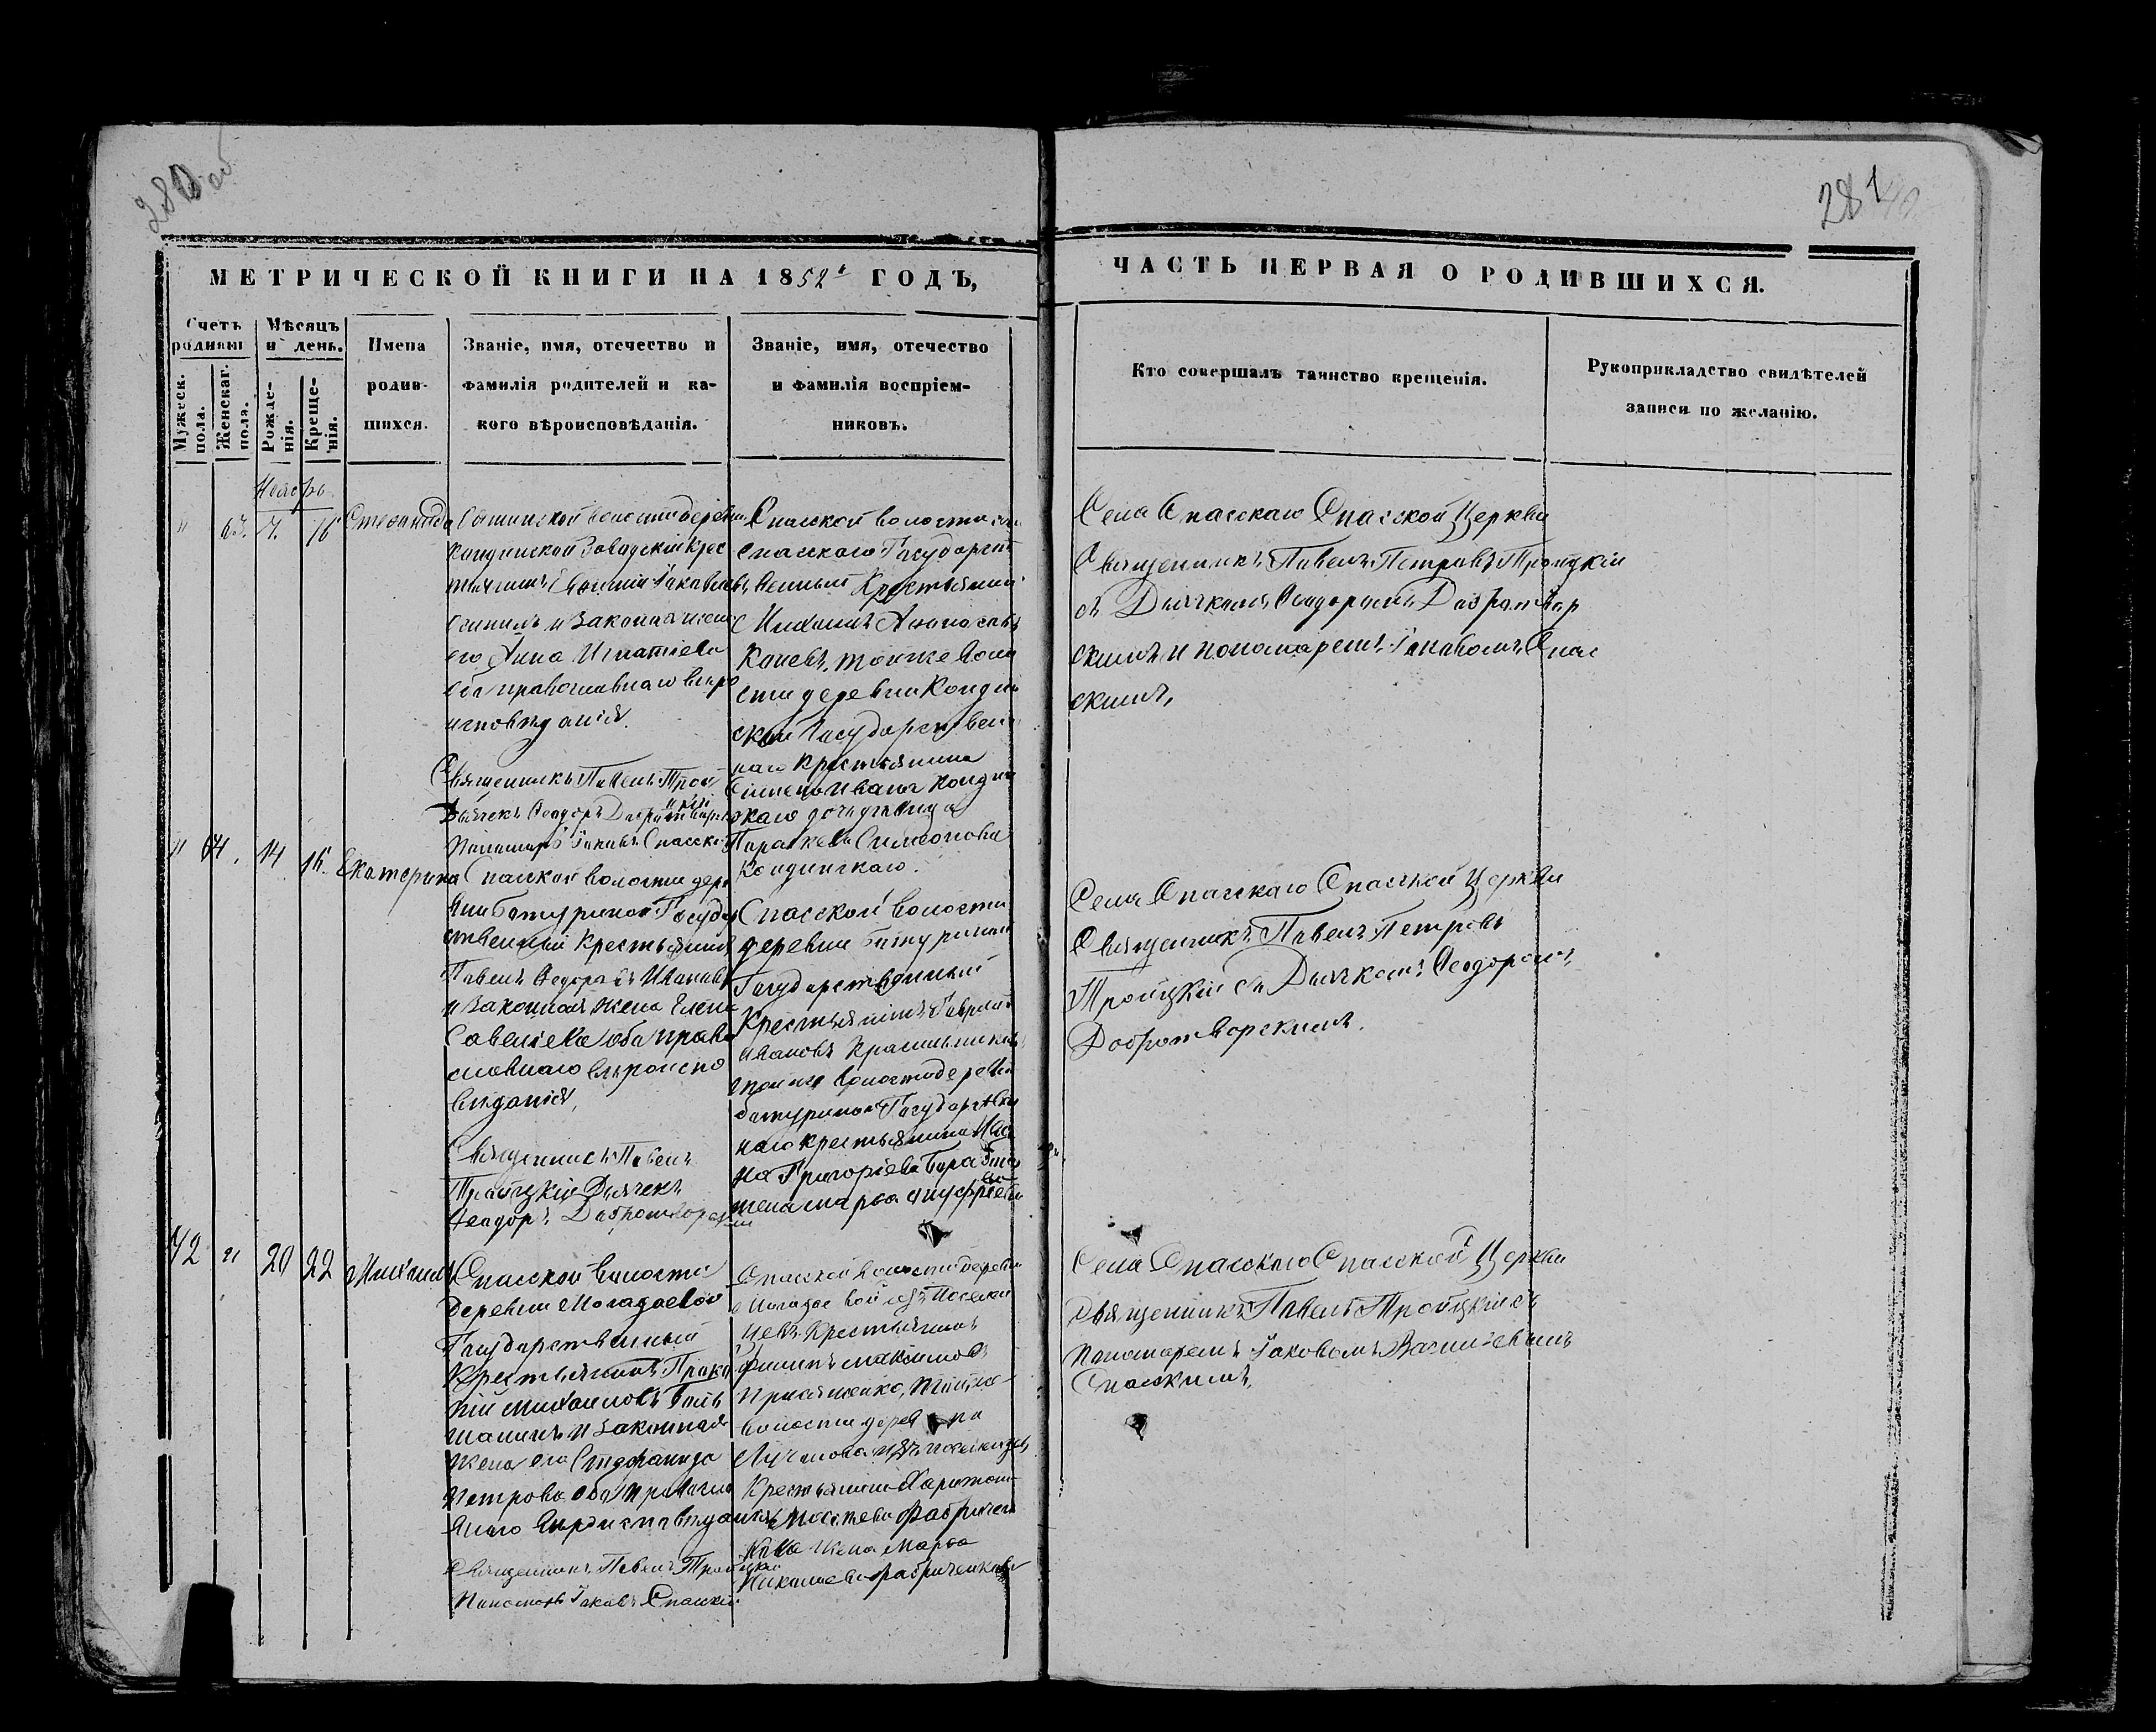 280 об
281
МЕТРИЧЕСКОЙ КНИГИ НА 1852 ГОДЪ,
ЧАСТЬ ПЕРВАЯ О РОДИВШИХСЯ.
Счетъ родивш
Мужеск. пола.
Женскаг. пола.
Мѣсяцъ и день.
Рожде-
нія.
Креще-
нія.
Имена
родив-
шихся.
Званіе, имя, отечество и
фамилія родителей и ка-
кого вѣроисповѣданія.
Званіе, имя, отечество
и фамилія воспріем-
никовъ.
Кто совершалъ таинство крещенія.
Рукоприкладство свидѣтелей
записи по желанію.
Ноябрь
" 63. 16
волости
Кондинской Заводскій Крес
и Законная жена
его Анна Игнатіева
оба православнаго вѣро
исповѣданія.
Священникъ Павелъ Трои
цкій
Дьячекъ Ѳеодоръ Добротворск
Пономарь Іаковъ Спасскій
Спасской волости
спасскаго Государст
венный Крестьянинъ
Михаилъ
Коневъ, тойже воло
сти деревни Кондин
ской Государствен
наго Крестьянина
Кондин
скаго дочь дѣвица
Параскева Симеонова
Кондинскаго.
Села Спасскаго Спасской Церкви
Священникъ Павелъ Петровъ Троицкій
съ Дьячкомъ Ѳеодоромъ Добротвор
скимъ и пономаремъ Іаковомъ Спас
скимъ,
" 64. 14 16. Екатерина
Спасской волости дере
вни батуриной Государ
ственный Крестьянинъ
Павелъ Ѳедоровъ Ивановъ
и Законная жена Елена
Савеліева оба право
славнаго вѣроиспо
вѣданія,
Священникъ Павелъ
Троицкій Дьячекъ
Ѳеодоръ Добротворскій
Спасской волости
деревни батуриной
Государственный
Крестьянинъ Гаврилъ
Ивановъ Красильниковъ
тойже волости деревни
батуриной Государствен
наго крестьянина
на Григоріева
жена марѳа
Села Спасскаго Спасской Церкви
Священникъ Павелъ Петровъ
Троицкій съ Дьячкомъ Ѳеодоромъ
Добротворскимъ.
42 " 20 22 Михаилъ
Спасской волости
деревни
Государственный
Крестьянинъ Проко
пій Михаиловъ Боль
шанинъ и Законная
жена его Стефанида
Петрова оба правосла
внаго вѣроисповѣданія
Священникъ Павелъ Троицкій
Пономарь Іаковъ Спасскій
Спасской волости деревни
изъ Поселен
цевъ Крестьянинъ
Филипъ Максимовъ
тойже
волости деревни
Лучанова изъ поселенцевъ
Крестьянина Харитона
жена Марѳа
Села Спасскаго Спасской Церкви
Священникъ Павелъ Троицкій съ
Пономаремъ Іаковомъ Васильевымъ
Спасскимъ,